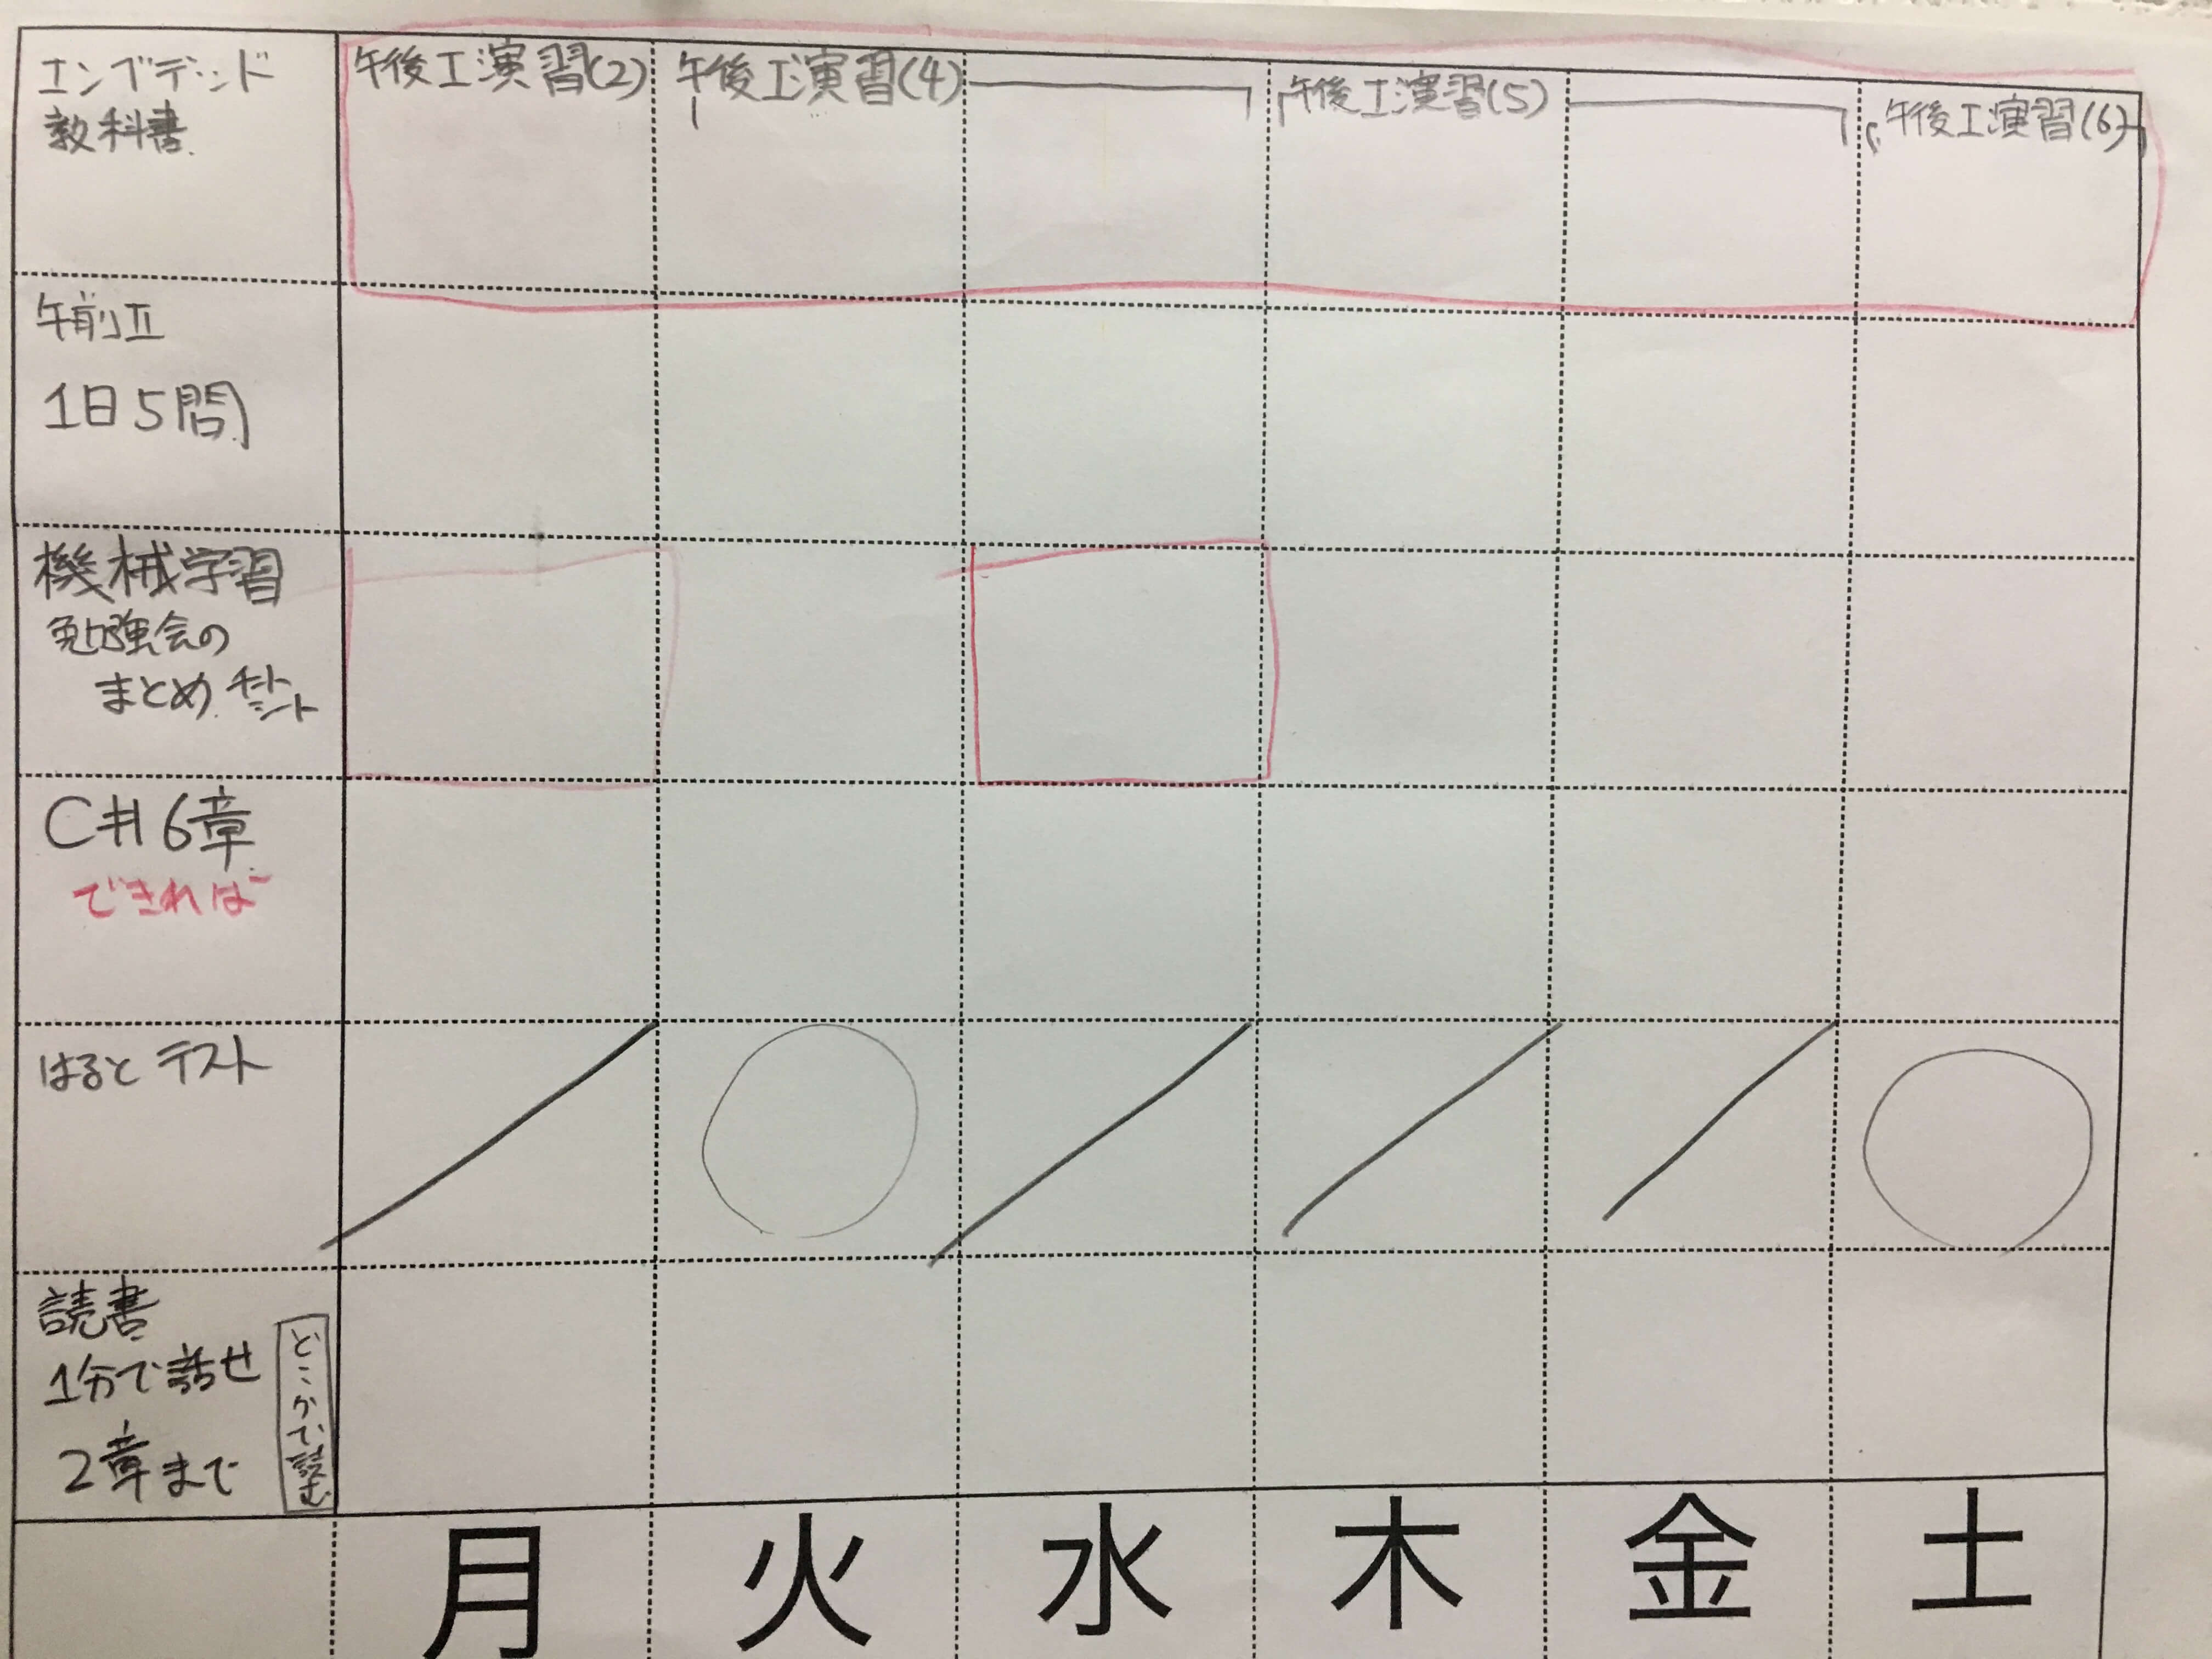 エンベデッド
教科書
午後Ⅰ演習(2)
午後Ⅰ演習(4)
午後Ⅰ演習(5)
午後Ⅰ演習(6)
午前Ⅱ
1日5問
機械学習
勉強会の
まとめ チートシート
C#6章
できれば
はると テスト
読書
1分で話せ
2章まで
どこかで読む
月 火 水 木 金 土